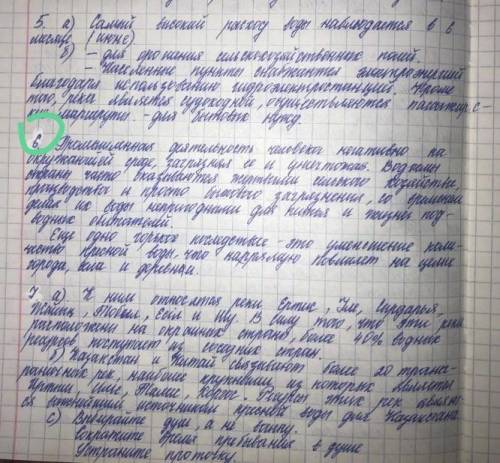 5. а) Самый высокий расход воды наблюдается в 6
месяце (июне)
б) – для орошения сельскохозяйственных полей.
– Населенные пункты снабжаются электроэнергией
благодаря использованию гидроэлектростанций. Кроме
того, река является судоходной, осуществляются пассажирс-
кие маршруты. - для бытовых нужд.
6. Промышленная деятельность человека негативно на
окружающей среде, загрязняя её и уничтожая. Водоемы
страны часто оказываются жертвами сельского хозяйства,
производства и просто бытового загрязнения, со временем
делая их воды непригодными для питья и жизни под-
водных обитателей.
Еще одно горькое последствие - это уменьшение коли-
чества пресной воды, что напрямую повлияет на целые
города, села и деревни.
7. а) К ним относятся реки Ертис, Или, Сырдарья,
Жайык, Тобол, Есил и Шу. В силу того, что эти реки
расположены на окраинах страны, более 40% водных
ресурсов поступают из соседних стран.
б) Казахстан и Китай связывают более 20 трансг-
раничных рек, наиболее крупными из которых являются
Иртыш, Или, Талас, Хоргос. Ресурсы этих рек являют-
ся важнейшим источником пресной воды для Казахстана
с) Выбирайте душ, а не ванну.
Сократите время пребывания в душе
Устраните протечку